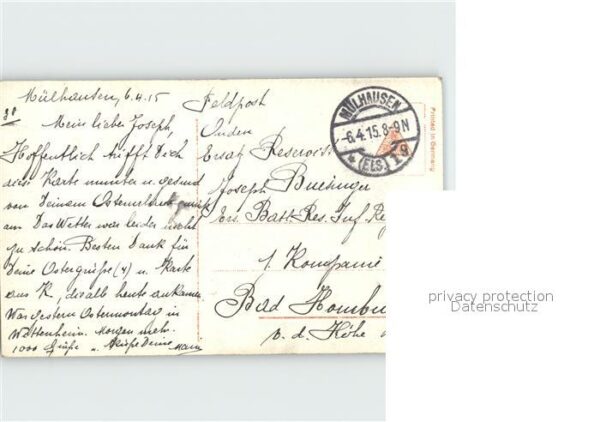 Mülhausen, 6.4.15
Mein lieber Joseph,
Hoffentlich trifft Dich
diese Karte munter u. gesund
von Deinem Osterurlaub zurück
an. Das Wetter war leider nicht
zu schön. Besten Dank für
Deine Ostergrüße (4) u. Karte
aus K., deshalb heute ankamen.
War gestern Ostermontag in
Wattenheim. Morgen mehr.
1000 Grüße u. Küsse Deine
Feldpost
An den
Ersatz Reservist
Joseph Buesinger
Ers. Batt. Res. Inf. Re
1. Kompanie
Bad Hombu
v. d. Höhe
MÜLHAUSEN
-6.4.15.8-9N
* (ELS.) 1 g
Printed in Germany
privacy protection
Datenschutz